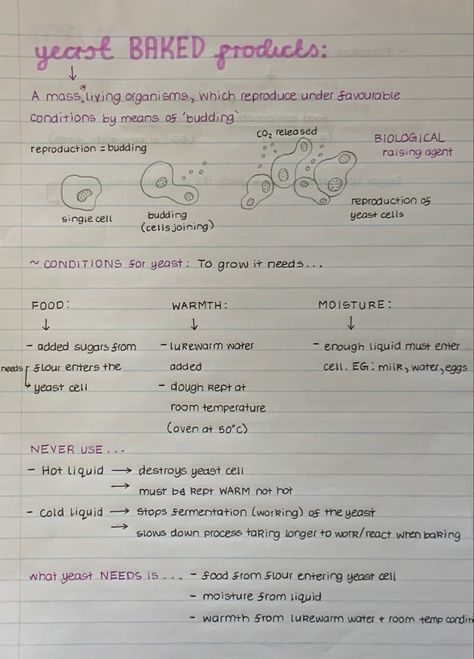 yeast BAKED products:
A mass, living organisms, which reproduce under favourable
conditions by means of 'budding'
reproduction = budding
CO₂ released
BIOLOGICAL
raising agent
single cell
budding
(cells joining)
reproduction of
yeast cells
~ CONDITIONS for yeast: To grow it needs...
FOOD:
↓
- added sugars from
needs flour enters the
yeast cell
WARMTH:
↓
- lukewarm water
added
- dough kept at
room temperature
(oven at 50°C)
MOISTURE:
↓
- enough liquid must enter
cell. EG: milk, water, eggs
NEVER USE...
- Hot liquid → destroys yeast cell
→ must be kept WARM not hot
- Cold liquid → stops fermentation (working) of the yeast
→ slows down process taking longer to work/react when baking
what yeast NEEDS is... - food from flour entering yeast cell
- moisture from liquid
- warmth from lukewarm water + room temp